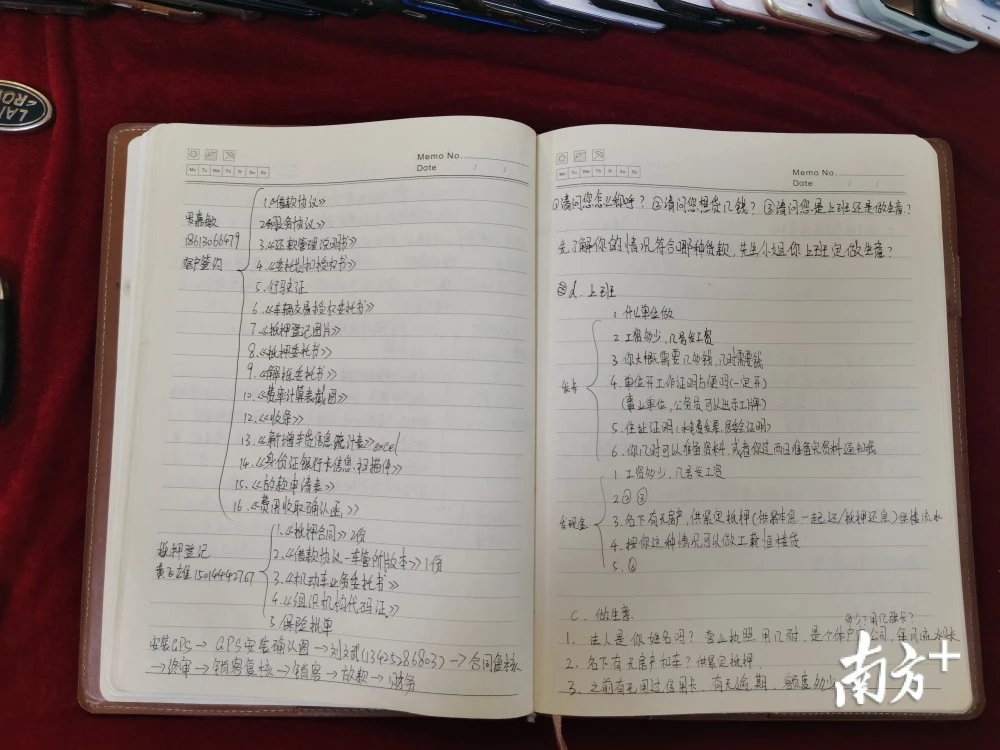 LAN
ROV
Memo No.
Date / /
Mo Tu We Th Fr Sa Su
1.《借款协议》
2.《服务协议》
3.《还款管理说明书》
18613066479
客户签约
4.《委托划扣授权书》
5.行驶证
6.《车辆处置授权委托书》
7.《抵押登记图片》
8.《抵押委托书》
9.《解抵委托书》
10.《费率计算表截图》
12.《收条》
13.《新增车贷信息统计表》excel
14.《身份证银行卡信息扫描件》
15.《放款申请表》
16.《费用收取确认函》
1.《抵押合同》2份
抵押登记
2.《借款协议-车管所版本》1份
15014442767
3.《机动车业务委托书》
4.《组织机构代码证》
5.保险批单
安装GPS→GPS安装确认图→刘文武(13425286803)→合同复核
→终审→销客复核→销客→放款→财务
Memo No.
Date / /
Mo Tu We Th Fr Sa Su
①请问您怎么称呼?②请问您想贷几钱?③请问您是上班还是做生意?
先了解你的情况符合哪种贷款,先生小姐你上班定做生意?
上班
1.什么单位做
2.工资多少,几号发工资
3.你大概需要几多钱,几时需要钱
4.单位开工作证明方便吗(一定开)
(事业单位,公务员可以出示工牌)
5.住址证明(水电费发票,居委会证明)
6.你几时可以准备资料,或者你这两日准备完资料通知我
1.工资多少,几号发工资
2.② ③
3.名下有无房产,供紧定抵押
4.按你这种情况可以做工薪恒楼贷
5.⑥
C.做生意
1.法人是你姓名吗?营业执照用几耐,是个体户
2.名下有无房产和车?供紧定抵押.
3.之前有无用过信用卡,有无逾期,额度多少
南方+